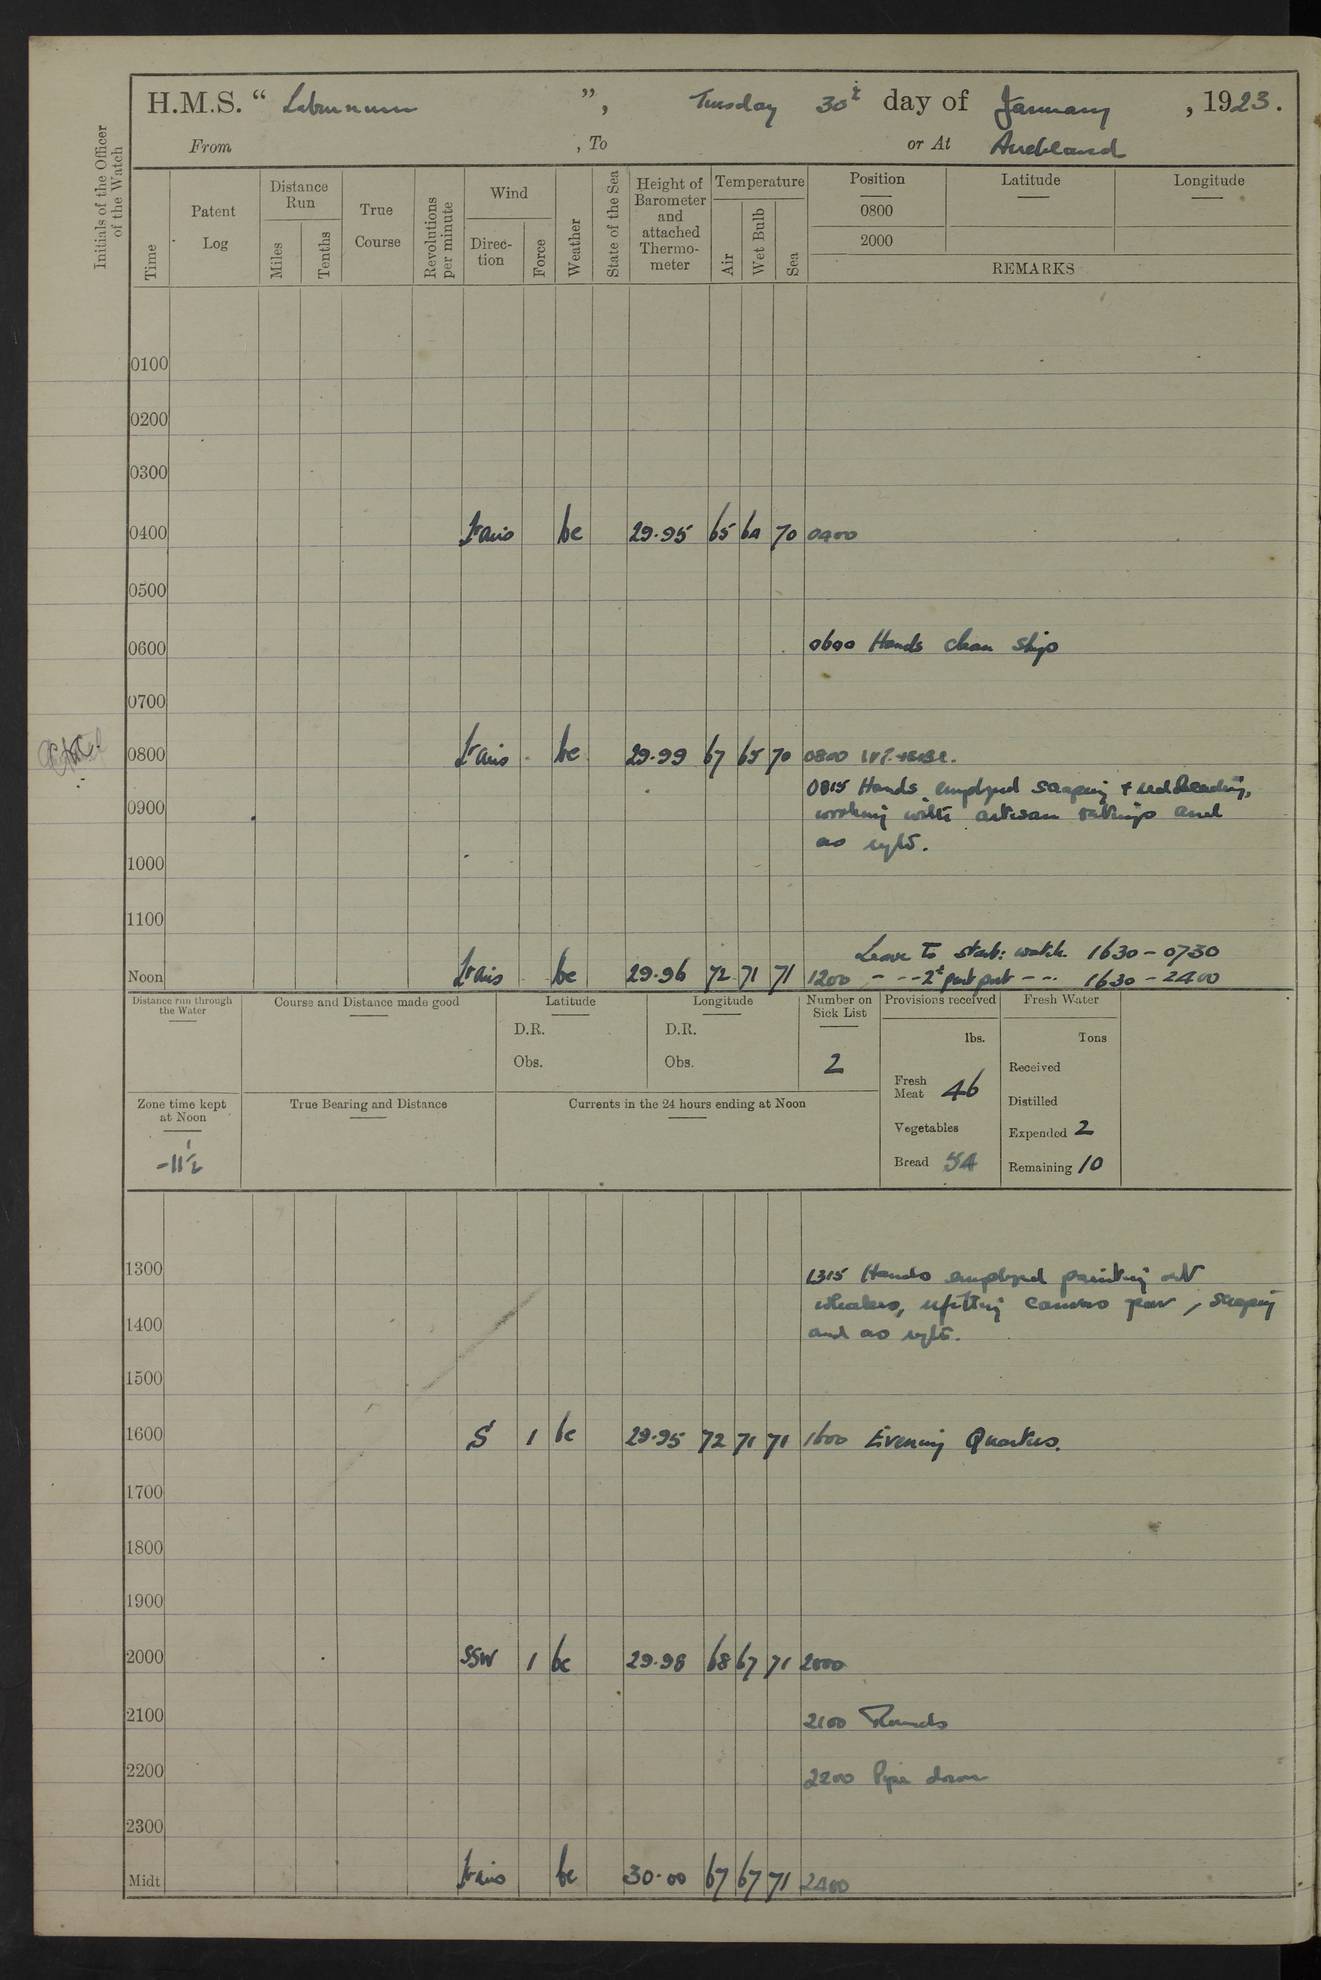 H.M.S. “ Laburnum ”, Tuesday 30th day of January, 1923.
From , To or At Auckland
Initials of the Officer of the Watch
Time
Patent Log
Distance Run
Miles
Tenths
True Course
Revolutions per minute
Wind
Direction
Force
Weather
State of the Sea
Height of Barometer and attached Thermometer
Temperature
Air
Wet Bulb
Sea
Position
0800
2000
Latitude
Longitude
REMARKS
0100
0200
0300
0400 be 29.95 65 64 70 0400
0500
0600 0600 Hands clean ship
0700
0800 be 29.99 67 65 70 0800
0815 Hands employed scraping & red leading,
0900 working with artisan ratings and
as reqte.
1000
1100
Leave to starb: watch. 1630 - 0730
Noon be 29.96 72 71 71 1200 - - - 2d part port - - - 1630 - 2400
Distance run through the Water
Course and Distance made good
Latitude
D.R.
Obs.
Longitude
D.R.
Obs.
Number on Sick List
2
Provisions received
lbs.
Fresh Meat 46
Vegetables
Bread 54
Fresh Water
Tons
Received
Distilled
Expended 2
Remaining 10
Zone time kept at Noon
-11½
True Bearing and Distance
Currents in the 24 hours ending at Noon
1300 1315 Hands employed painting out
whalers, refitting canvas gear, scraping
1400 and as reqte.
1500
1600 S 1 bc 29.95 72 71 71 1600 Evening Quarters.
1700
1800
1900
2000 SSW 1 bc 29.98 68 67 71 2000
2100 2100 Rounds
2200 2200 Pipe down
2300
Midt be 30.00 67 67 71 2400